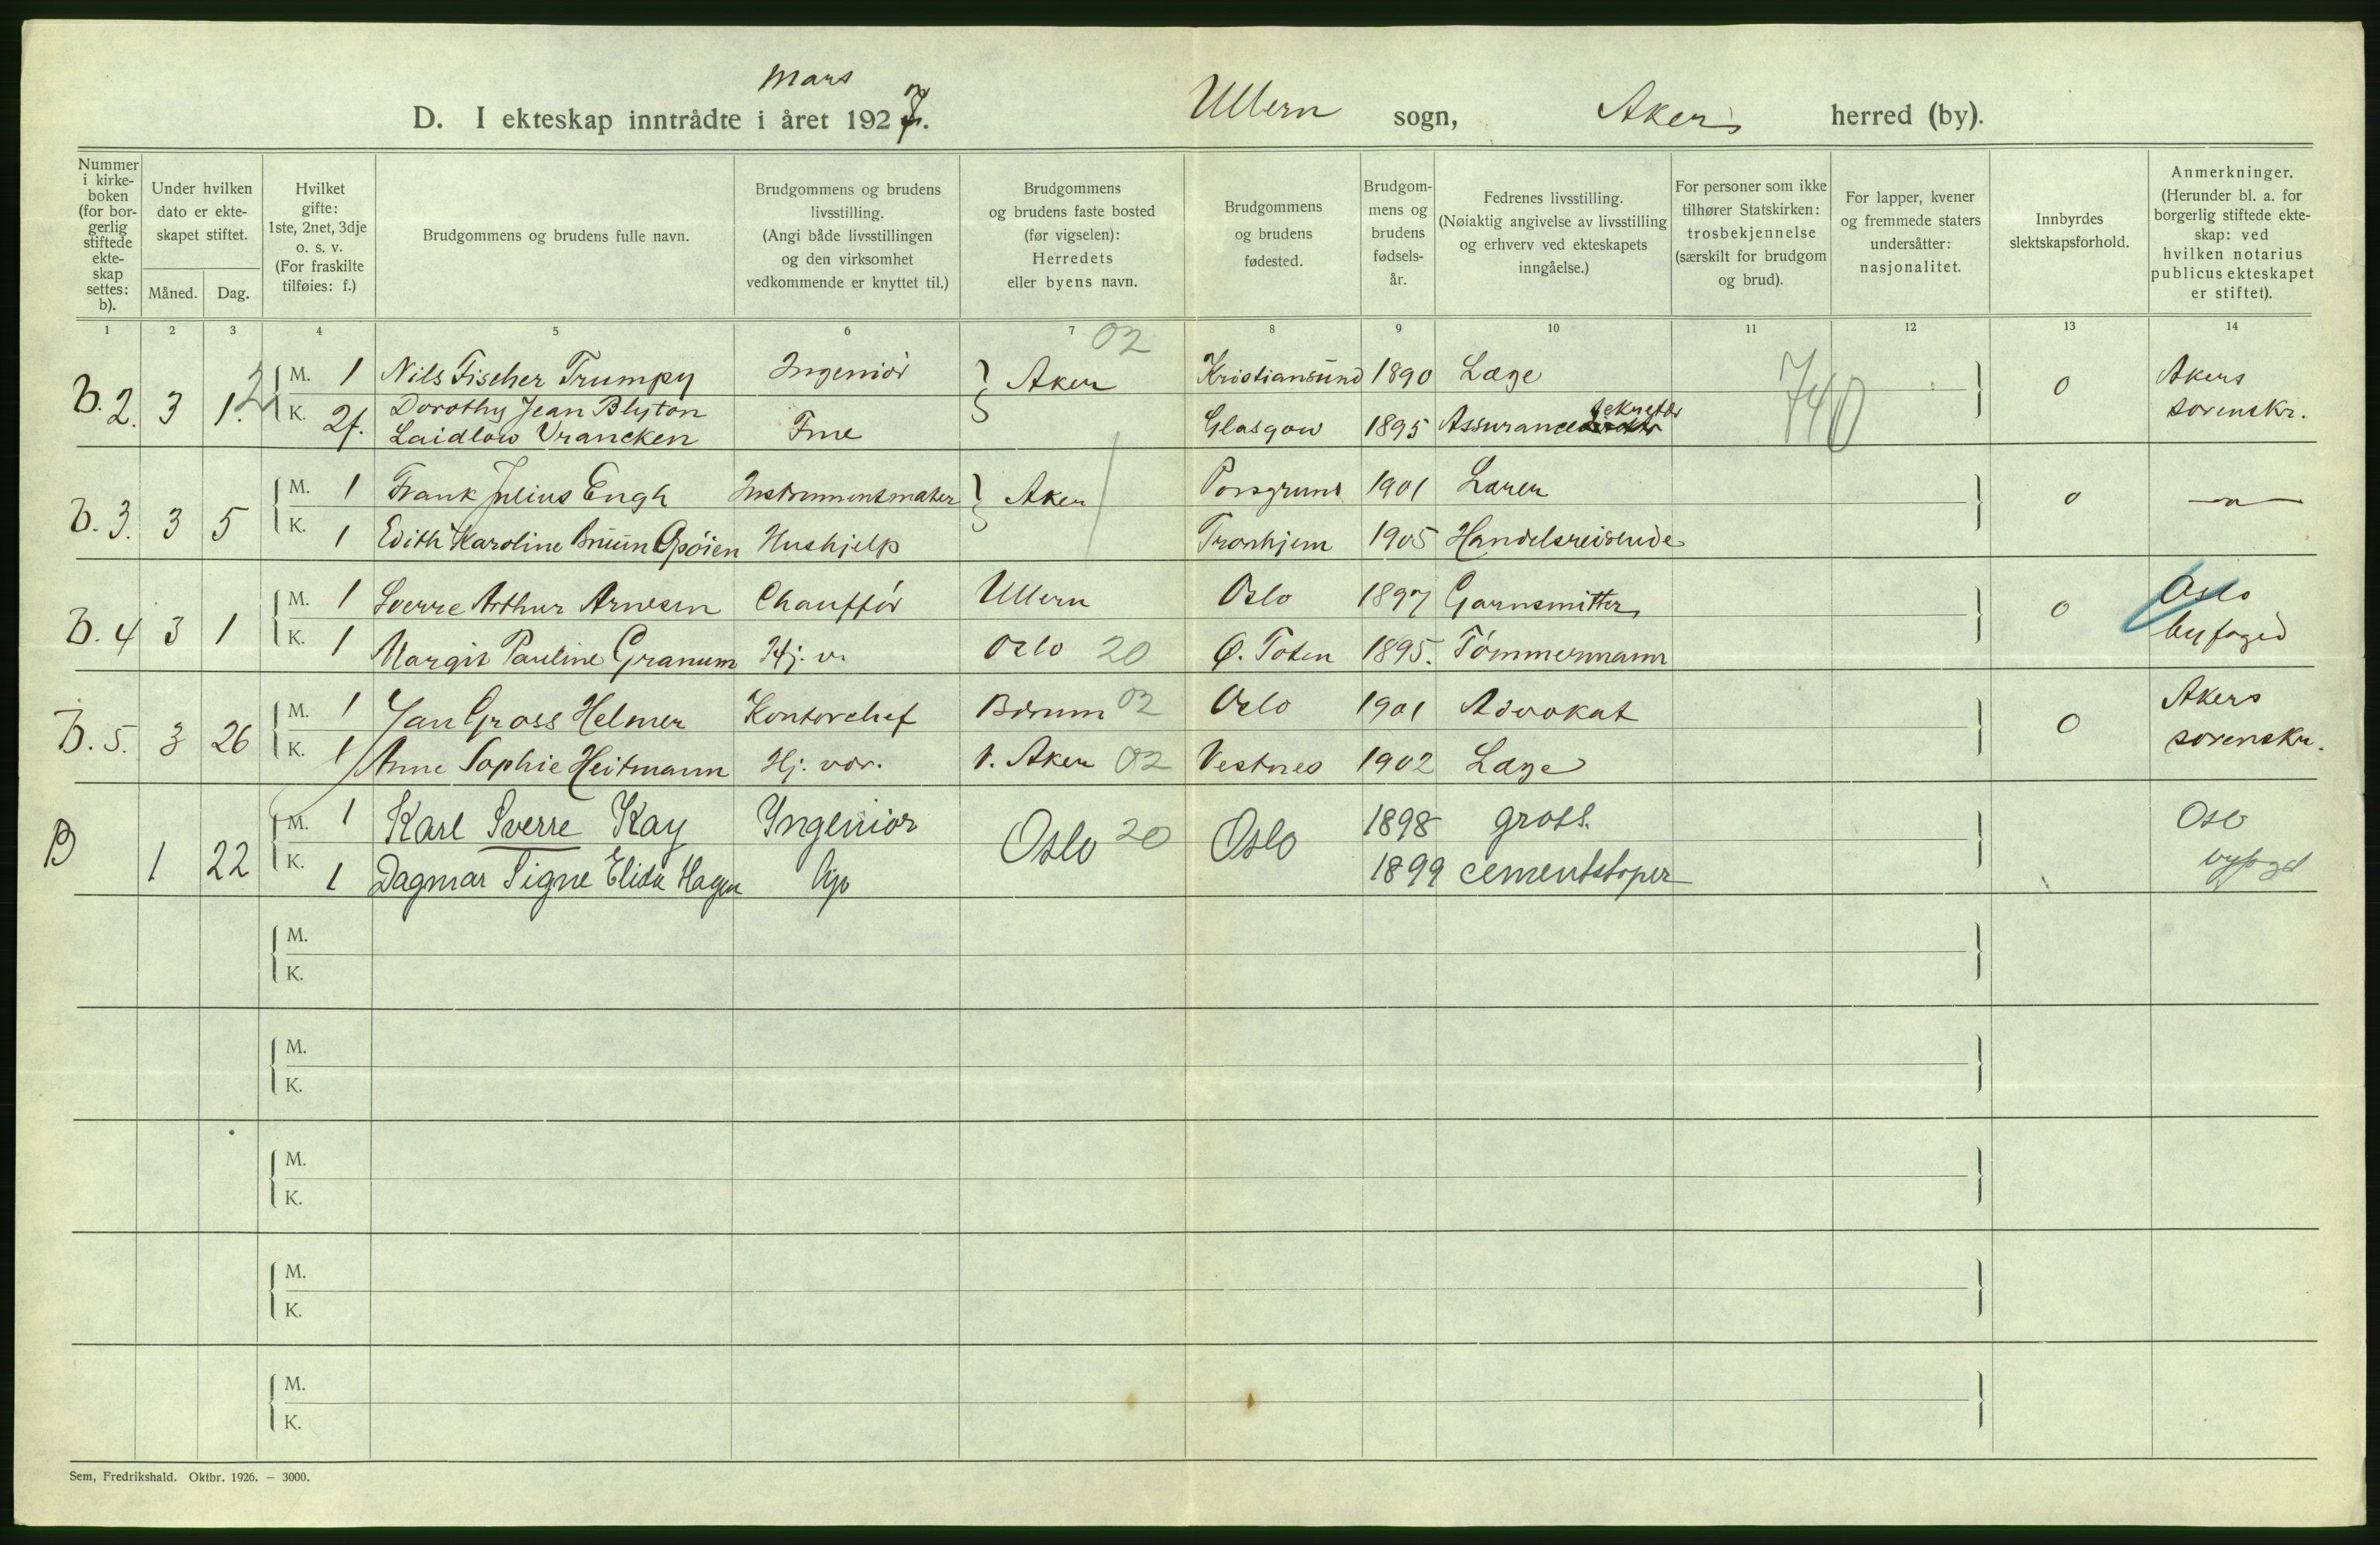 Mars
D. I ekteskap inntrådte i året 1927. Ullern sogn, Akers herred (by).
Nummer i kirke-boken (for bor-gerlig stiftede ekte-skap settes: b).
Under hvilken dato er ekte-skapet stiftet.
Måned. Dag.
Hvilket gifte: 1ste, 2net, 3dje o. s. v. (For fraskilte tilføies: f.)
Brudgommens og brudens fulle navn.
Brudgommens og brudens livsstilling. (Angi både livsstillingen og den virksomhet vedkommende er knyttet til.)
Brudgommens og brudens faste bosted (før vigselen): Herredets eller byens navn.
Brudgommens og brudens fødested.
Brudgom-mens og brudens fødsels-år.
Fedrenes livsstilling. (Nøiaktig angivelse av livsstilling og erhverv ved ekteskapets inngåelse.)
For personer som ikke tilhører Statskirken: trosbekjennelse (særskilt for brudgom og brud).
For lapper, kvener og fremmede staters undersåtter: nasjonalitet.
Innbyrdes slektskapsforhold.
Anmerkninger. (Herunder bl. a. for borgerlig stiftede ekte-skap: ved hvilken notarius publicus ekteskapet er stiftet).
1 2 3 4 5 6 7 8 9 10 11 12 13 14
02
B. 2. 3 1. M. 1 Nils Fischer Trumpy Ingeniør Aker Kristiansund 1890 Læge 0 Akers sorenskr.
K. 2f. Dorothy Jean Blyton Laidlow Vrancken Frue Glasgow 1895 Assurance sekretær
740
B. 3. 3 5 M. 1 Frank Julius Engh Instrumentmaker Aker Porsgrund 1901 Lærer 0 — " —
K. 1 Edith Karoline Bruun Opøien Hushjelp Tronhjem 1905 Handelsreisende
B. 4 3 1 M. 1 Sverre Arthur Arnesen Chauffør Ullern Oslo 1897 Garnsmitter 0 Oslo byfoged
K. 1 Margit Pauline Granum Hj. v. Oslo 20 Ø. Toten 1895. Tømmermann
B. 5. 3 26 M. 1 Jan Gross Helmer Kontorchef Bærum 02 Oslo 1901 Advokat 0 Akers sorenskr.
K. 1 Anne Sophie Heitmann Hj. vær. V. Aker 02 Vestnes 1902 Læge
B 1 22 M. 1 Karl Sverre Kay Ingeniør Oslo 20 Oslo 1898 gross. Oslo byfogd
K. 1 Dagmar Signe Elida Hagen 1899 cementstøper
M.
K.
M.
K.
M.
K.
M.
K.
M.
K.
Sem, Fredrikshald. Oktbr. 1926. — 3000.